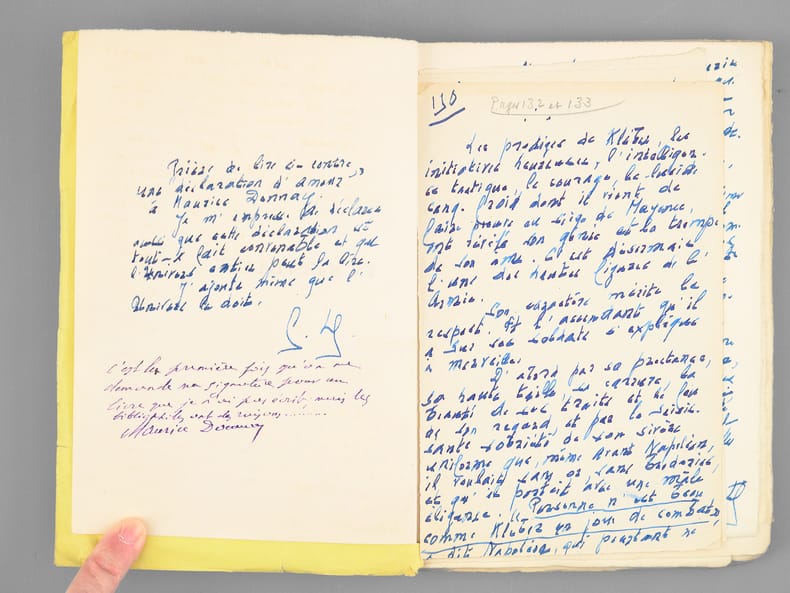 Prière de lire ci-contre,
une déclaration d'amour,
à Maurice Donnay.
Je m'empresse de déclarer
aussi que cette déclaration est
tout-à-fait convenable et que
l'Univers entier peut la lire.
J'ajoute même que l'
Univers le doit.
S. G.
C'est la première fois qu'on me
demande ma signature pour un
livre que je n'ai pas écrit, mais les
bibliophiles ont des raisons.........
Maurice Donnay
130
Pages 132 et 133
Les prodiges de Kléber, les
initiatives heureuses, l'intelligen-
ce tactique, le courage, le
sang-froid dont il vient de
faire preuve au siège de Mayence,
ont révélé son génie et la trempe
de son âme. Il est désormais
l'une des hautes figures de l'
Armée.
Son caractère mérite le
respect. Et l'ascendant qu'il
a sur ses soldats s'explique
à merveille.
D'abord par sa prestance,
sa haute taille, sa carrure, la
beauté de ses traits et le feu
de son regard, et par la saisis-
sante sobriété de son sévère
uniforme que, même avant Napoléon,
il voulait sans or, sans broderies,
et qu'il portait avec une mâle
élégance. "Personne n'est beau
comme Kléber un jour de combat",
a dit Napoléon, qui pourtant ne